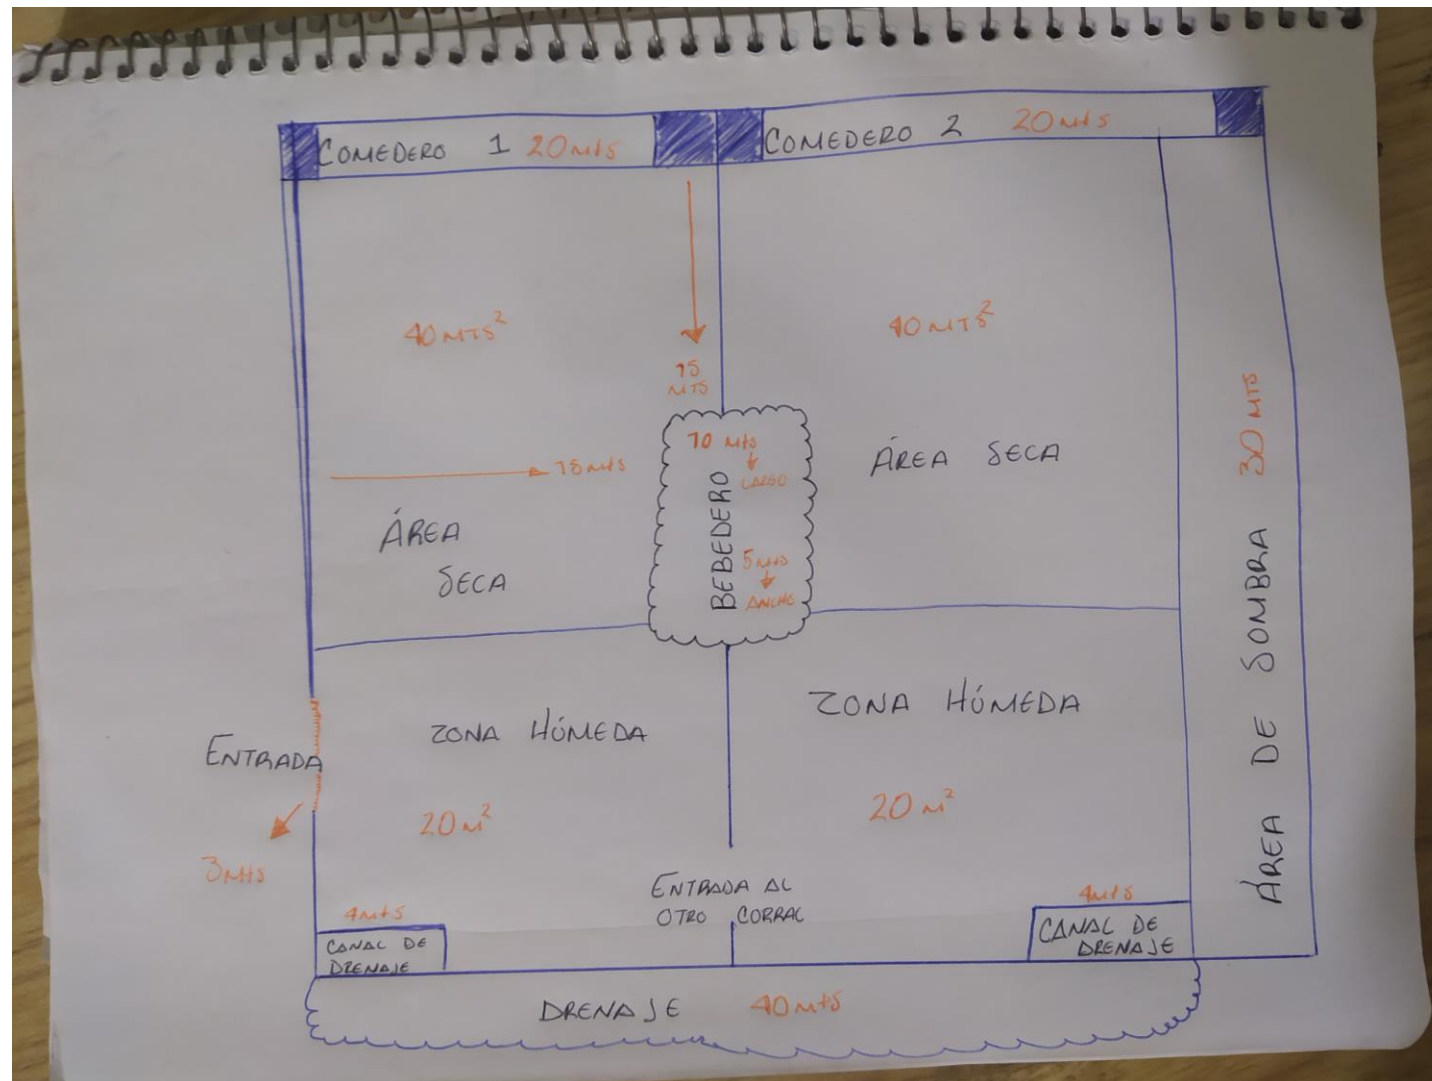 COMEDERO 1 20 mts
COMEDERO 2 20 mts
40 MTS²
40 MTS²
15
MTS
10 mts
LARGO
BEBEDERO
5 mts
ANCHO
15 mts
ÁREA
SECA
ÁREA SECA
ÁREA DE SOMBRA 30 MTS
ZONA HÚMEDA
ZONA HÚMEDA
ENTRADA
3 mts
20 m²
20 m²
ENTRADA AL
OTRO CORRAL
4 mts
CANAL DE
DRENAJE
4 mts
CANAL DE
DRENAJE
DRENAJE 40 mts